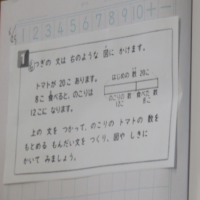 1234567890+-
1
つぎの 文は 右のような 図に かけます。
トマトが 20こ あります。
8こ 食べると、のこりは
12こに なります。
はじめの 数 20こ
のこりの 数 12こ
食べた 数 8こ
上の 文を つかって、のこりの トマトの 数を
もとめる もんだい文を つくり、図や しきに
かいて みましょう。